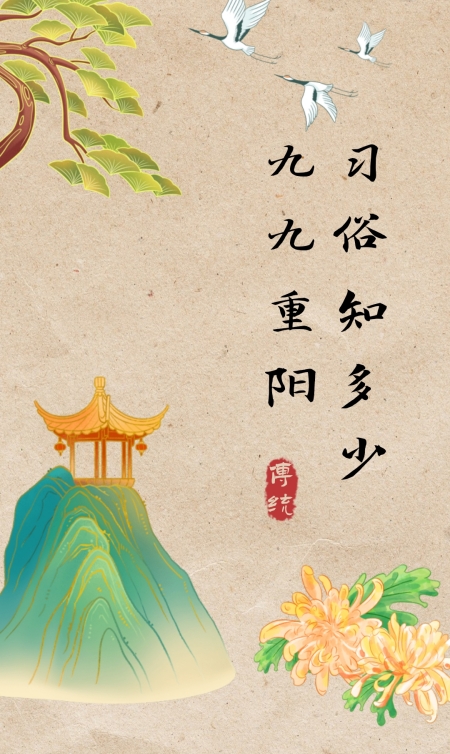 习俗知多少
九九重阳
傳统